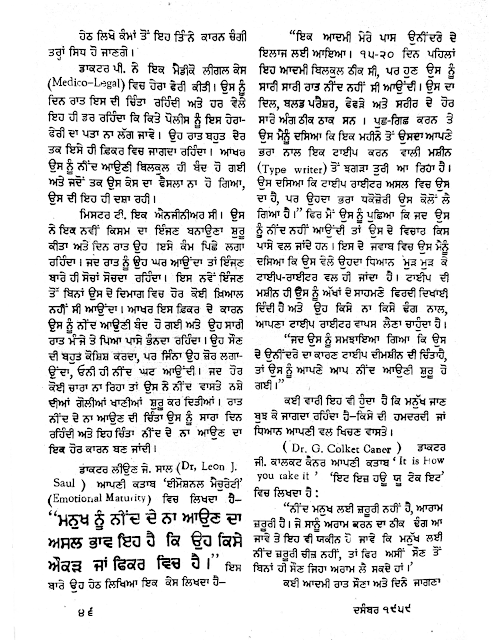 ਹੇਠ ਲਿਖੇ ਕੰਮਾਂ ਤੋਂ ਇਹ ਤਿੰਨੇ ਕਾਰਨ ਚੰਗੀ
ਤਰ੍ਹਾਂ ਸਿਧ ਹੋ ਜਾਣਗੇ।
ਡਾਕਟਰ ਪੀ. ਨੇ ਇਕ ਮੈਡੀਕੋ ਲੀਗਲ ਕੇਸ
(Medico-Legal) ਵਿਚ ਹੇਰਾ ਫੇਰੀ ਕੀਤੀ। ਉਸ ਨੂੰ
ਦਿਨ ਰਾਤ ਇਸ ਦੀ ਚਿੰਤਾ ਰਹਿੰਦੀ ਅਤੇ ਹਰ ਵੇਲੇ
ਇਹ ਹੀ ਡਰ ਰਹਿੰਦਾ ਕਿ ਕਿਤੇ ਪੋਲੀਸ ਨੂੰ ਇਸ ਹੇਰਾ-
ਫੇਰੀ ਦਾ ਪਤਾ ਨਾ ਲੱਗ ਜਾਵੇ। ਉਹ ਰਾਤ ਬਹੁਤ ਦੇਰ
ਤਕ ਇਸੇ ਹੀ ਫ਼ਿਕਰ ਵਿਚ ਜਾਗਦਾ ਰਹਿੰਦਾ। ਆਖਰ
ਉਸ ਨੂੰ ਨੀਂਦ ਆਉਣੀ ਬਿਲਕੁਲ ਹੀ ਬੰਦ ਹੋ ਗਈ
ਅਤੇ ਜਦੋਂ ਤਕ ਉਸ ਕੇਸ ਦਾ ਫੈਸਲਾ ਨਾ ਹੋ ਗਿਆ,
ਉਸ ਦੀ ਇਹ ਹੀ ਦਸ਼ਾ ਰਹੀ।
ਮਿਸਟਰ ਟੀ. ਇਕ ਐਨਜੀਨੀਅਰ ਸੀ। ਉਸ
ਨੇ ਇਕ ਨਵੀਂ ਕਿਸਮ ਦਾ ਇੰਜਣ ਬਨਾਉਣਾ ਸ਼ੁਰੂ
ਕੀਤਾ ਅਤੇ ਦਿਨ ਰਾਤ ਉਹ ਇਸੇ ਕੰਮ ਪਿਛੇ ਲਗਾ
ਰਹਿੰਦਾ। ਜਦ ਰਾਤ ਨੂੰ ਉਹ ਘਰ ਆਉਂਦਾ ਤਾਂ ਇੰਜਣ
ਬਾਰੇ ਹੀ ਸੋਚਾਂ ਸੋਚਦਾ ਰਹਿੰਦਾ। ਇਸ ਨਵੇਂ ਇੰਜਣ
ਤੋਂ ਬਿਨਾਂ ਉਸ ਦੇ ਦਿਮਾਗ ਵਿਚ ਹੋਰ ਕੋਈ ਖ਼ਿਆਲ
ਨਹੀਂ ਸੀ ਆਉਂਦਾ। ਆਖਰ ਇਸ ਫ਼ਿਕਰ ਦੇ ਕਾਰਨ
ਉਸ ਨੂੰ ਨੀਂਦ ਆਉਣੀ ਬੰਦ ਹੋ ਗਈ ਅਤੇ ਉਹ ਸਾਰੀ
ਰਾਤ ਮੰਜੇ ਤੇ ਪਿਆ ਪਾਸੇ ਭੰਨਦਾ ਰਹਿੰਦਾ। ਉਹ ਸੌਣ
ਦੀ ਬਹੁਤ ਕੋਸ਼ਿਸ਼ ਕਰਦਾ, ਪਰ ਜਿੰਨਾ ਉਹ ਜ਼ੋਰ ਲਗਾ-
ਉਂਦਾ, ਓਨੀ ਹੀ ਨੀਂਦ ਘਟ ਆਉਂਦੀ। ਜਦ ਹੋਰ
ਕੋਈ ਚਾਰਾ ਨਾ ਰਿਹਾ ਤਾਂ ਉਸ ਨੇ ਨੀਂਦ ਵਾਸਤੇ ਨਸ਼ੇ
ਦੀਆਂ ਗੋਲੀਆਂ ਖਾਣੀਆਂ ਸ਼ੁਰੂ ਕਰ ਦਿਤੀਆਂ। ਰਾਤ
ਨੀਂਦ ਦੇ ਨਾ ਆਉਣ ਦੀ ਚਿੰਤਾ ਉਸ ਨੂੰ ਸਾਰਾ ਦਿਨ
ਰਹਿੰਦੀ ਅਤੇ ਇਹ ਚਿੰਤਾ ਨੀਂਦ ਦੇ ਨਾ ਆਉਣ ਦਾ
ਇਕ ਹੋਰ ਕਾਰਨ ਬਣ ਜਾਂਦੀ।
ਡਾਕਟਰ ਲੀਉਨ ਜੇ. ਸਾਲ (Dr, Leon J.
Saul ) ਆਪਣੀ ਕਤਾਬ 'ਈਮੋਸ਼ਨਲ ਮੈਚੁਰੇਟੀ'
(Emotional Maturity) ਵਿਚ ਲਿਖਦਾ ਹੈ–
"ਮਨੁਖ ਨੂੰ ਨੀਂਦ ਦੇ ਨਾ ਆਉਣ ਦਾ
ਅਸਲ ਭਾਵ ਇਹ ਹੈ ਕਿ ਉਹ ਕਿਸੇ
ਔਕੜ ਜਾਂ ਫਿਕਰ ਵਿਚ ਹੈ।" ਇਸ
ਬਾਰੇ ਉਹ ਹੇਠ ਲਿਖਿਆ ਇਕ ਕੇਸ ਲਿਖਦਾ ਹੈ–
"ਇਕ ਆਦਮੀ ਮੇਰੇ ਪਾਸ ਉਨੀਂਦਰੇ ਦੇ
ਇਲਾਜ ਲਈ ਆਇਆ। ੧੫-੨੦ ਦਿਨ ਪਹਿਲਾਂ
ਇਹ ਆਦਮੀ ਬਿਲਕੁਲ ਠੀਕ ਸੀ, ਪਰ ਹੁਣ ਉਸ ਨੂੰ
ਸਾਰੀ ਸਾਰੀ ਰਾਤ ਨੀਂਦ ਨਹੀਂ ਸੀ ਆਉਂਦੀ। ਉਸ ਦਾ
ਦਿਲ, ਬਲਡ ਪਰੈਸ਼ਰ, ਫੇਫੜੇ ਅਤੇ ਸਰੀਰ ਦੇ ਹੋਰ
ਸਾਰੇ ਅੰਗ ਠੀਕ ਠਾਕ ਸਨ। ਪੁਛ-ਗਿਛ ਕਰਨ ਤੇ
ਉਸ ਮੈਨੂੰ ਦਸਿਆ ਕਿ ਇਕ ਮਹੀਨੇ ਤੋਂ ਉਸਦਾ ਆਪਣੇ
ਭਰਾ ਨਾਲ ਇਕ ਟਾਈਪ ਕਰਨ ਵਾਲੀ ਮਸ਼ੀਨ
(Type writer) ਤੋਂ ਝਗੜਾ ਤੁਰੀ ਆ ਰਿਹਾ ਹੈ।
ਉਸ ਦਸਿਆ ਕਿ ਟਾਈਪ ਰਾਈਟਰ ਅਸਲ ਵਿਚ ਉਸ
ਦਾ ਹੈ, ਪਰ ਉਹਦਾ ਭਰਾ ਧਕੋਜ਼ੋਰੀ ਉਸ ਕੋਲੋਂ ਲੈ
ਗਿਆ ਹੈ।" ਫਿਰ ਮੈਂ ਉਸ ਨੂੰ ਪੁਛਿਆ ਕਿ ਜਦ ਉਸ
ਨੂੰ ਨੀਂਦ ਨਹੀਂ ਆਉਂਦੀ ਤਾਂ ਉਸ ਦੇ ਵਿਚਾਰ ਕਿਸ
ਪਾਸੇ ਵਲ ਜਾਂਦੇ ਹਨ। ਇਸ ਦੇ ਜਵਾਬ ਵਿਚ ਉਸ ਮੈਨੂੰ
ਦਸਿਆ ਕਿ ਉਸ ਵੇਲੇ ਉਹਦਾ ਧਿਆਨ ਮੁੜ ਮੁੜ ਕੇ
ਟਾਈਪ-ਰਾਈਟਰ ਵਲ ਹੀ ਜਾਂਦਾ ਹੈ। ਟਾਈਪ ਦੀ
ਮਸ਼ੀਨ ਹੀ ਉਸ ਨੂੰ ਅੱਖਾਂ ਦੇ ਸਾਹਮਣੇ ਫਿਰਦੀ ਦਿਖਾਈ
ਦਿੰਦੀ ਹੈ ਅਤੇ ਉਹ ਕਿਸੇ ਨਾ ਕਿਸੇ ਢੰਗ ਨਾਲ,
ਆਪਣਾ ਟਾਈਪ ਰਾਈਟਰ ਵਾਪਸ ਲੈਣਾ ਚਾਹੁੰਦਾ ਹੈ।"
"ਜਦ ਉਸ ਨੂੰ ਸਮਝਾਇਆ ਗਿਆ ਕਿ ਉਸ
ਦੇ ਉਨੀਂਦਰੇ ਦਾ ਕਾਰਣ ਟਾਈਪ ਦੀ ਮਸ਼ੀਨ ਦੀ ਚਿੰਤਾ ਹੈ,
ਤਾਂ ਉਸ ਨੂੰ ਆਪਣੇ ਆਪ ਨੀਂਦ ਆਉਣੀ ਸ਼ੁਰੂ ਹੋ
ਗਈ।"
ਕਈ ਵਾਰੀ ਇਹ ਵੀ ਹੁੰਦਾ ਹੈ ਕਿ ਮਨੁੱਖ ਜਾਣ
ਬੁਝ ਕੇ ਜਾਗਦਾ ਰਹਿੰਦਾ ਹੈ–ਕਿਸੇ ਦੀ ਹਮਦਰਦੀ ਜਾਂ
ਧਿਆਨ ਆਪਣੀ ਵਲ ਖਿਚਣ ਵਾਸਤੇ।
( Dr. G. Colket Caner ) ਡਾਕਟਰ
ਜੀ. ਕਾਲਕਟ ਕੈਨਰ ਆਪਣੀ ਕਤਾਬ 'It is How
you take it' 'ਇਟ ਇਜ਼ ਹਉ ਯੂ ਟੇਕ ਇਟ'
ਵਿਚ ਲਿਖਦਾ ਹੈ :
"ਨੀਂਦ ਮਨੁਖ ਲਈ ਜ਼ਰੂਰੀ ਨਹੀਂ ਹੈ, ਆਰਾਮ
ਜ਼ਰੂਰੀ ਹੈ। ਜੇ ਸਾਨੂੰ ਅਰਾਮ ਕਰਨ ਦਾ ਠੀਕ ਢੰਗ ਆ
ਜਾਵੇ ਤੇ ਇਹ ਵੀ ਯਕੀਨ ਹੋ ਜਾਵੇ ਕਿ ਮਨੁੱਖ ਲਈ
ਨੀਂਦ ਜ਼ਰੂਰੀ ਚੀਜ਼ ਨਹੀਂ, ਤਾਂ ਫਿਰ ਅਸੀਂ ਸੌਣ ਤੋਂ
ਬਿਨਾਂ ਹੀ ਸੌਣ ਜਿਹਾ ਅਰਾਮ ਲੈ ਸਕਦੇ ਹਾਂ।'
ਕਈ ਆਦਮੀ ਰਾਤ ਸੌਣਾ ਅਤੇ ਦਿਨੇ ਜਾਗਣਾ
੪੬
ਦਸੰਬਰ ੧੯੫੯